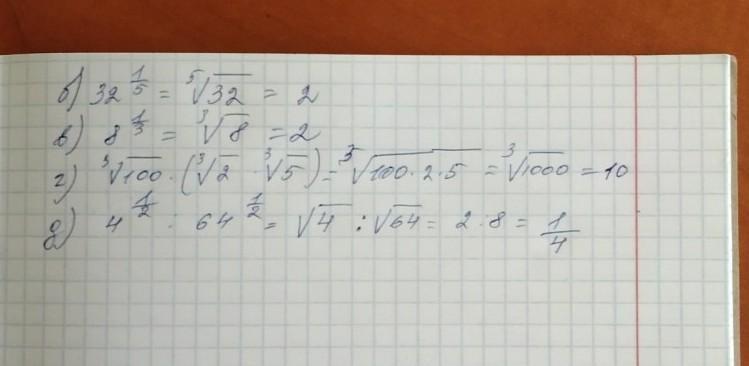 б) 32^(1/5) = ⁵√32 = 2
в) 8^(1/3) = ³√8 = 2
г) ³√100 · (³√2 · ³√5) = ³√(100·2·5) = ³√1000 = 10
д) 4^(1/2) : 64^(1/2) = √4 : √64 = 2 : 8 = 1/4